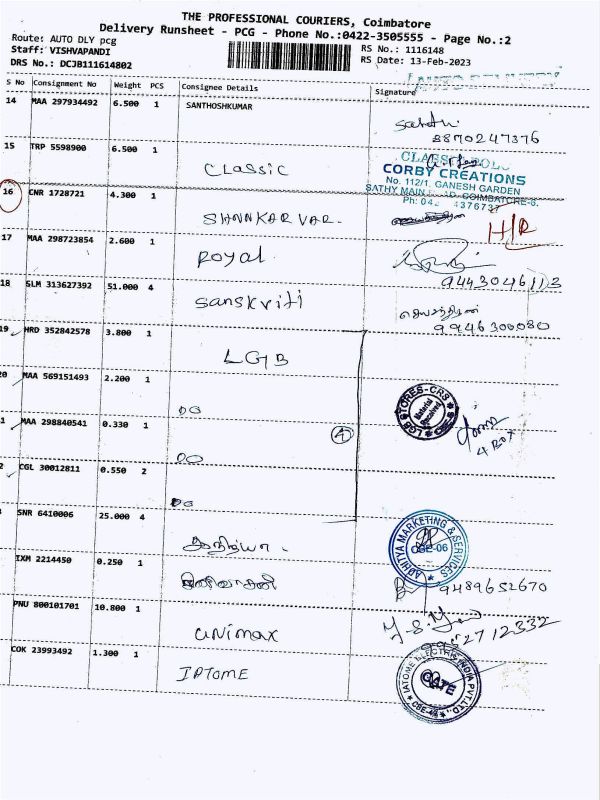 THE PROFESSIONAL COURIERS, Coimbatore
Delivery Runsheet - PCG - Phone No.:0422-3505555 - Page No.:2
Route: AUTO DLY pcg
RS No.: 1116148
Staff: VISHVAPANDI
RS Date: 13-Feb-2023
DRS No.: DCJB111614802
AUTO DELIVERY
S No Consignment No Weight PCS Consignee Details Signature
14 MAA 297934492 6.500 1 SANTHOSHKUMAR
8870247376
15 TRP 5598900 6.500 1 CLASSIC
CORBY CREATIONS
No. 112/1, GANESH GARDEN
SATHY MAIN COIMBATORE-6.
Ph: 04 4376737
16 CNR 1728721 4.300 1 SHNNKARVAR-
H/R
17 MAA 298723854 2.600 1 ROYAL
9443046113
18 SLM 313627392 51.000 4 Sanskriti
9946300080
19 HRD 352842578 3.800 1 LGB
20 MAA 569151493 2.200 1 DO
LGB STORES-CRS
Material Received
CBE
4 BOX
1 MAA 298840541 0.330 1 DO
4
2 CGL 30012811 0.550 2 DO
SNR 6410006 25.000 4
ADHITYA MARKETING & SERVICES
CBE-06
IXM 2214450 0.250 1
9489652670
PNU 800101701 10.800 1 UNIMAX
2712332
COK 23993492 1.300 1 IPTOME
IATOME ELECTRIC INDIA PVT.LTD.
CBE